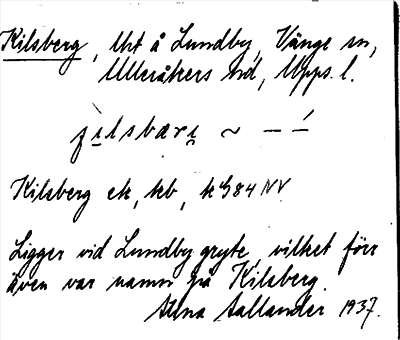 Kilsberg, lht å Lundby, Vänge sn,
Ulleråkers hd, Upps. l.
Kilsberg ek, hb, k984 NV
Ligger vid Lundby gryte, vilket förr
även var namn på Kilsberg.
Anna Sallander 1937.